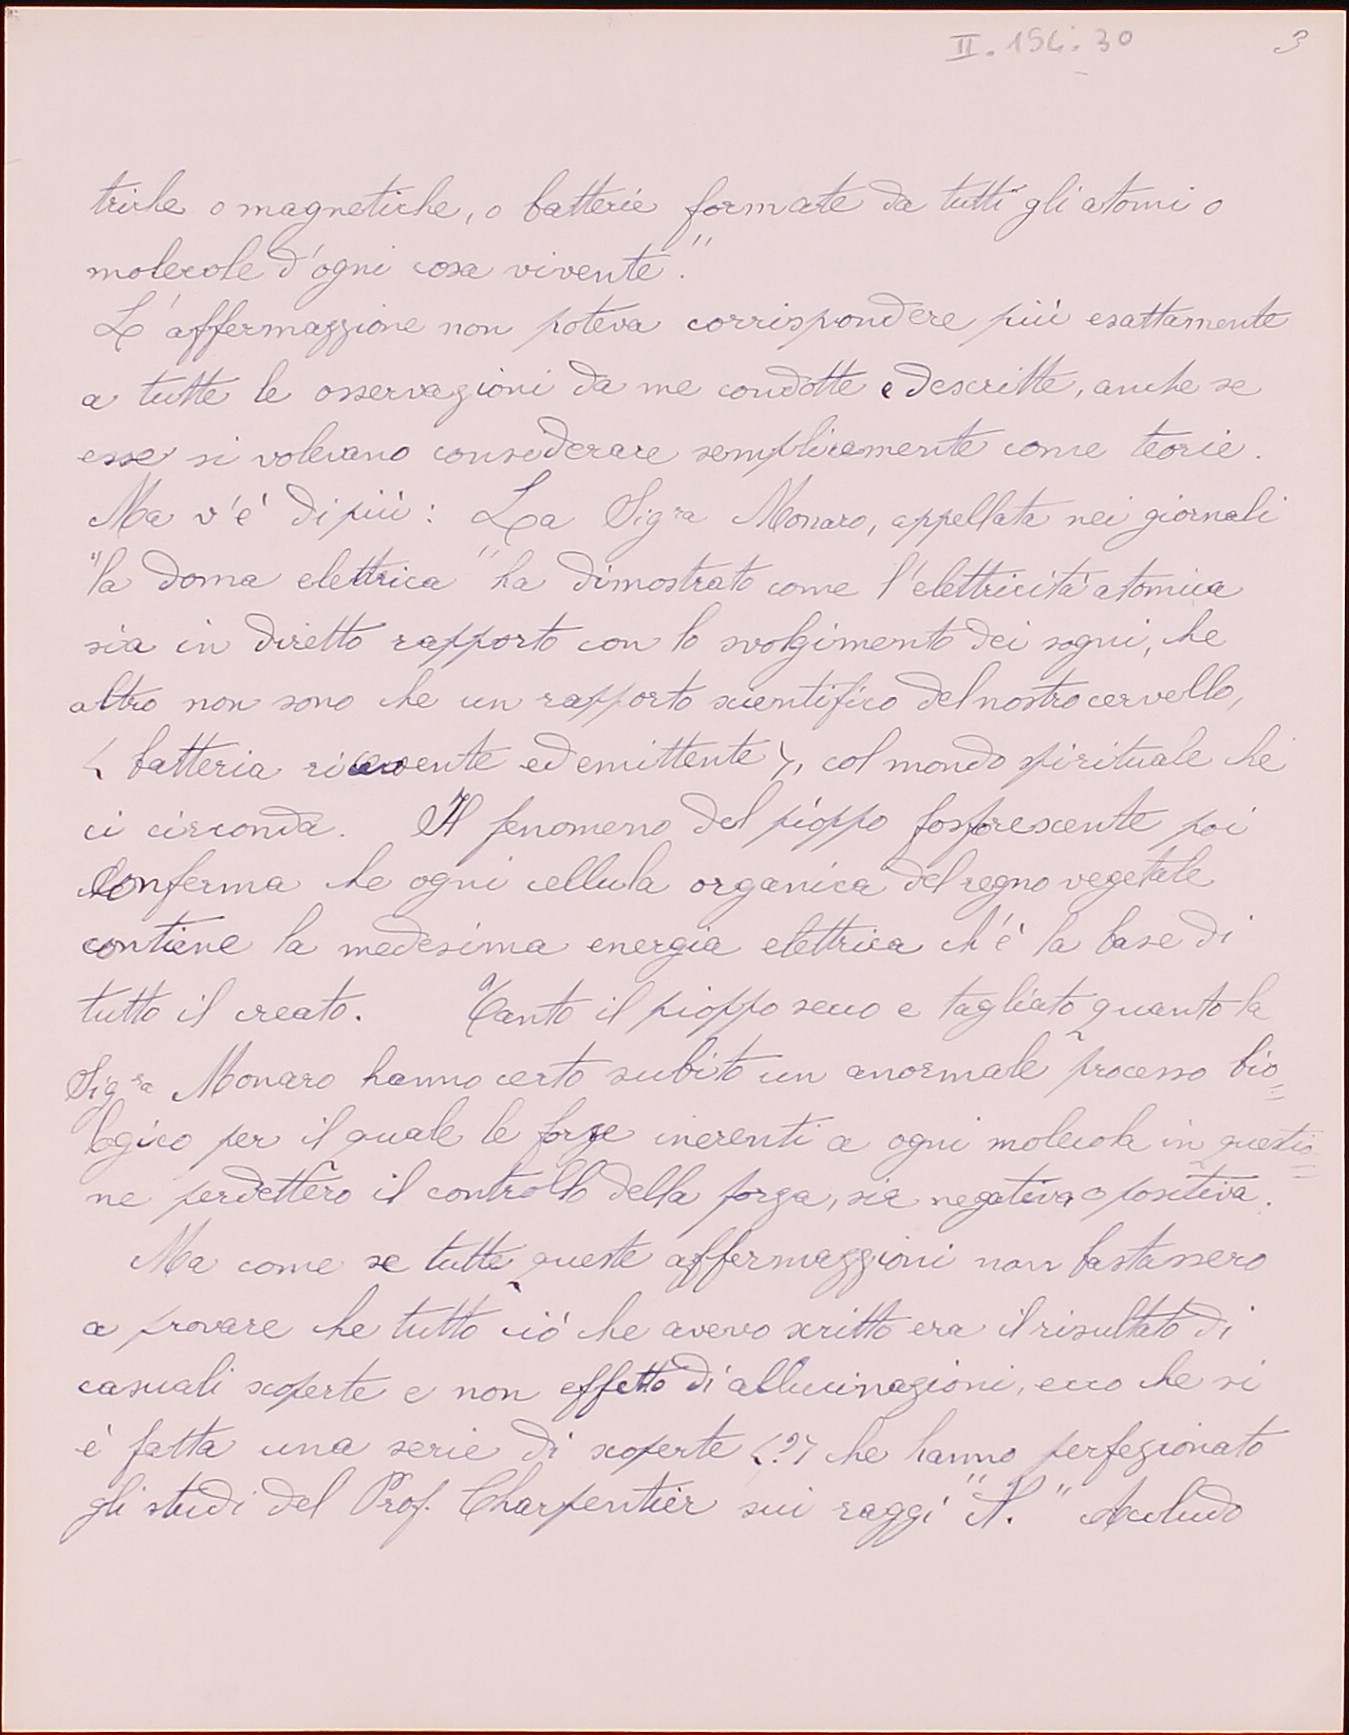 II. 154. 30 3
triche o magnetiche, o batterie formate da tutti gli atomi o
molecole d'ogni cosa vivente."
L'affermazzione non poteva corrispondere più esattamente
a tutte le osservazioni da me condotte e descritte, anche se
esse si volevano considerare sempliremente come teorie.
Ma v'é di più: La Sig.ra Monaro, appellata nei giornali
"la donna elettrica" ha dimostrato come l'elettricità atomica
sia in diretto rapporto con lo svolgimento dei sogni, che
altro non sono che un rapporto scientifico del nostro cervello,
( batteria ricevente ed emittente ), col mondo spirituale che
ci circonda. Il fenomeno del pioppo fosforescente poi
conferma che ogni cellula organica del regno vegetale
contiene la medesima energia elettrica ch'é la base di
tutto il creato. Tanto il pioppo secco e tagliato quanto la
Sig.ra Monaro hanno certo subito un anormale processo bio=
logico per il quale le forze inerenti a ogni molecola in questio=
ne perdettero il controllo della forza, sia negativa o positiva.
Ma come se tutte queste affermazzioni non bastassero
a provare che tutto ció che avevo scritto era il risultato di
casuali scoperte e non effetto di allucinazioni, ecco che si
é fatta una serie di scoperte (?) che hanno perfezionato
gli studi del Prof. Charpentier sui raggi "N." Accludo